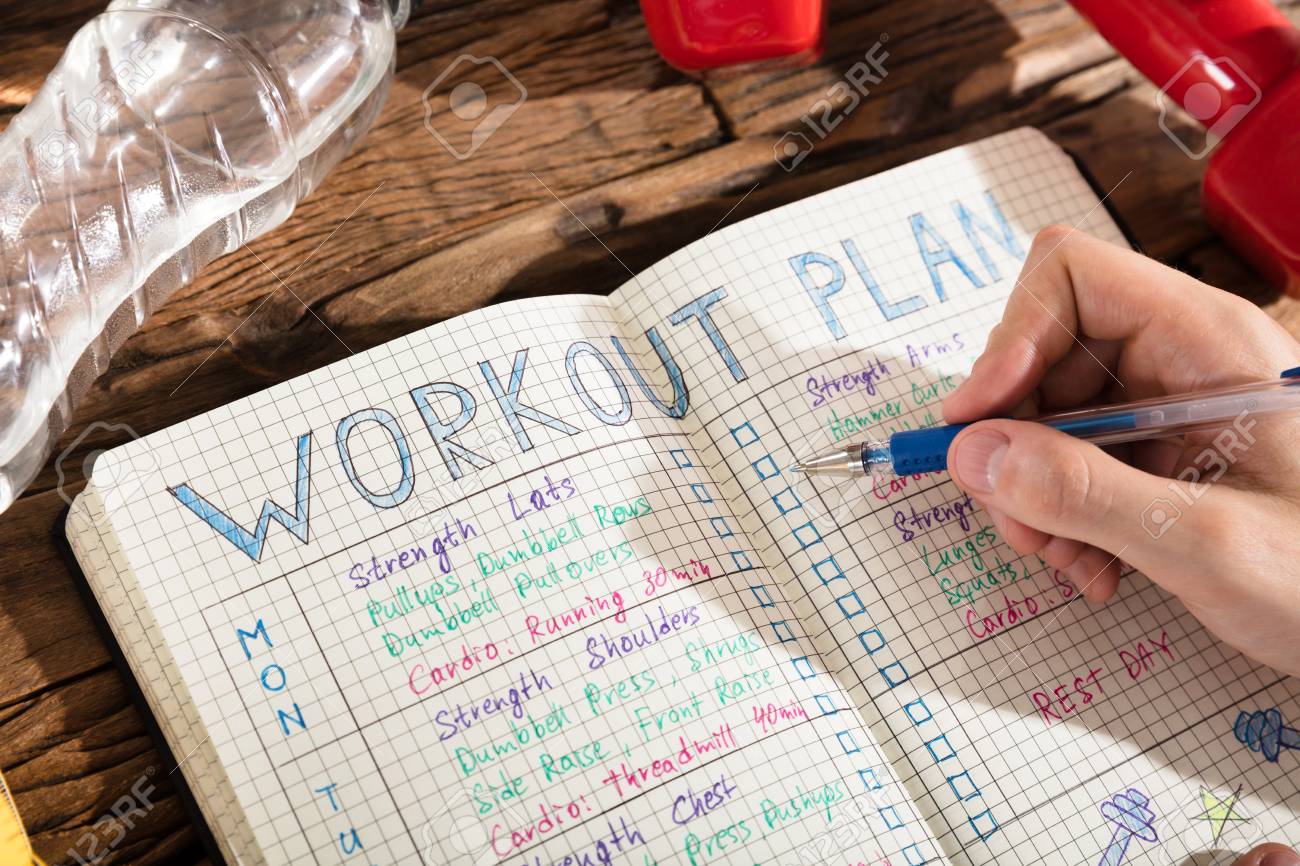 WORKOUT PLAN
MON
Strength Lats
Pullups, Dumbbell Rows
Dumbbell Pullovers
Cardio: Running 30 min
TU
Strength Shoulders
Dumbbell Press, Snrugs
Side Raise, Front Raise
Cardio: threadmill 40min
Strength Chest
Press Pushups
Strength Arms
Hammer Curls
Cardio
Strengt
Lunges
Squats,
Cardio: S
REST DAY
123RF
123RF
123RF
123RF
123RF
123RF